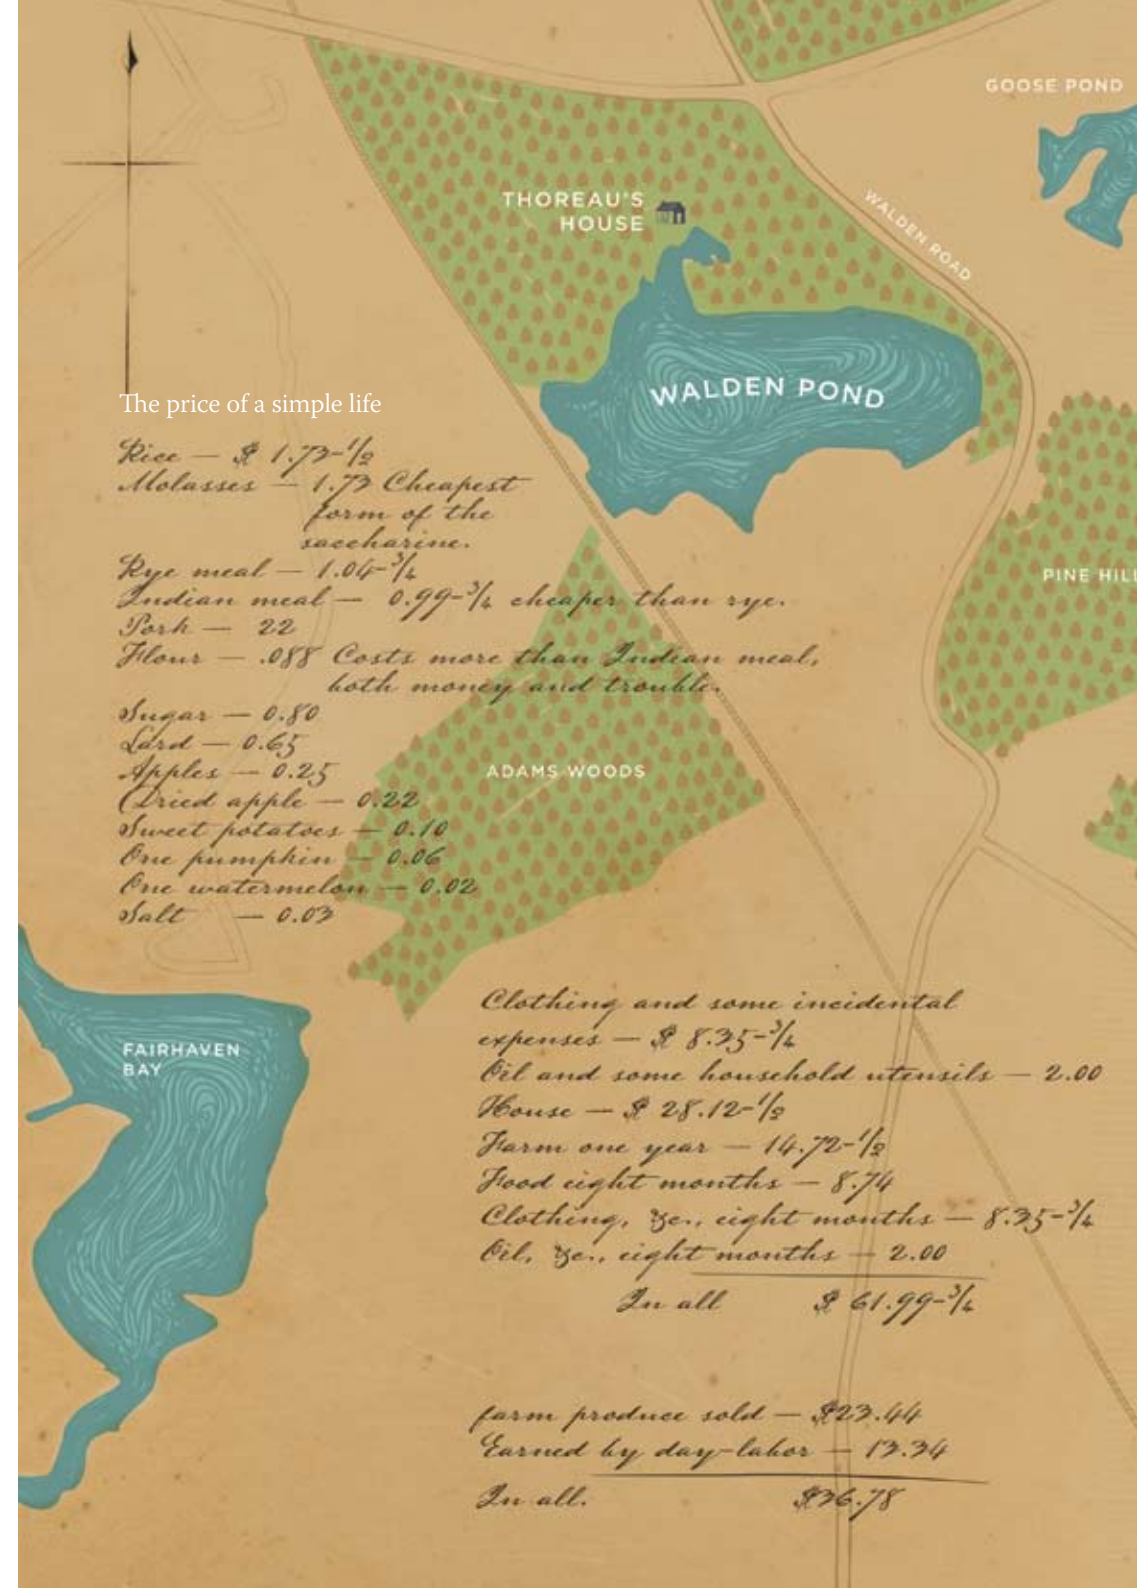 GOOSE POND
THOREAU'S
HOUSE
WALDEN ROAD
WALDEN POND
The price of a simple life
Rice — $ 1.73-1/2
Molasses — 1.73 Cheapest
form of the
saccharine.
Rye meal — 1.04-3/4
Indian meal — 0.99-3/4 cheaper than rye.
Pork — 22
Flour — .088 Costs more than Indian meal,
both money and trouble.
Sugar — 0.80
Lard — 0.65
Apples — 0.25
Dried apple — 0.22
Sweet potatoes — 0.10
One pumpkin — 0.06
One watermelon — 0.02
Salt — 0.03
PINE HILL
ADAMS WOODS
FAIRHAVEN
BAY
Clothing and some incidental
expenses — $ 8.35-3/4
Oil and some household utensils — 2.00
House — $ 28.12-1/2
Farm one year — 14.72-1/2
Food eight months — 8.74
Clothing, &c., eight months — 8.35-3/4
Oil, &c., eight months — 2.00
In all $ 61.99-3/4
farm produce sold — $23.44
Earned by day-labor — 13.34
In all. $36.78